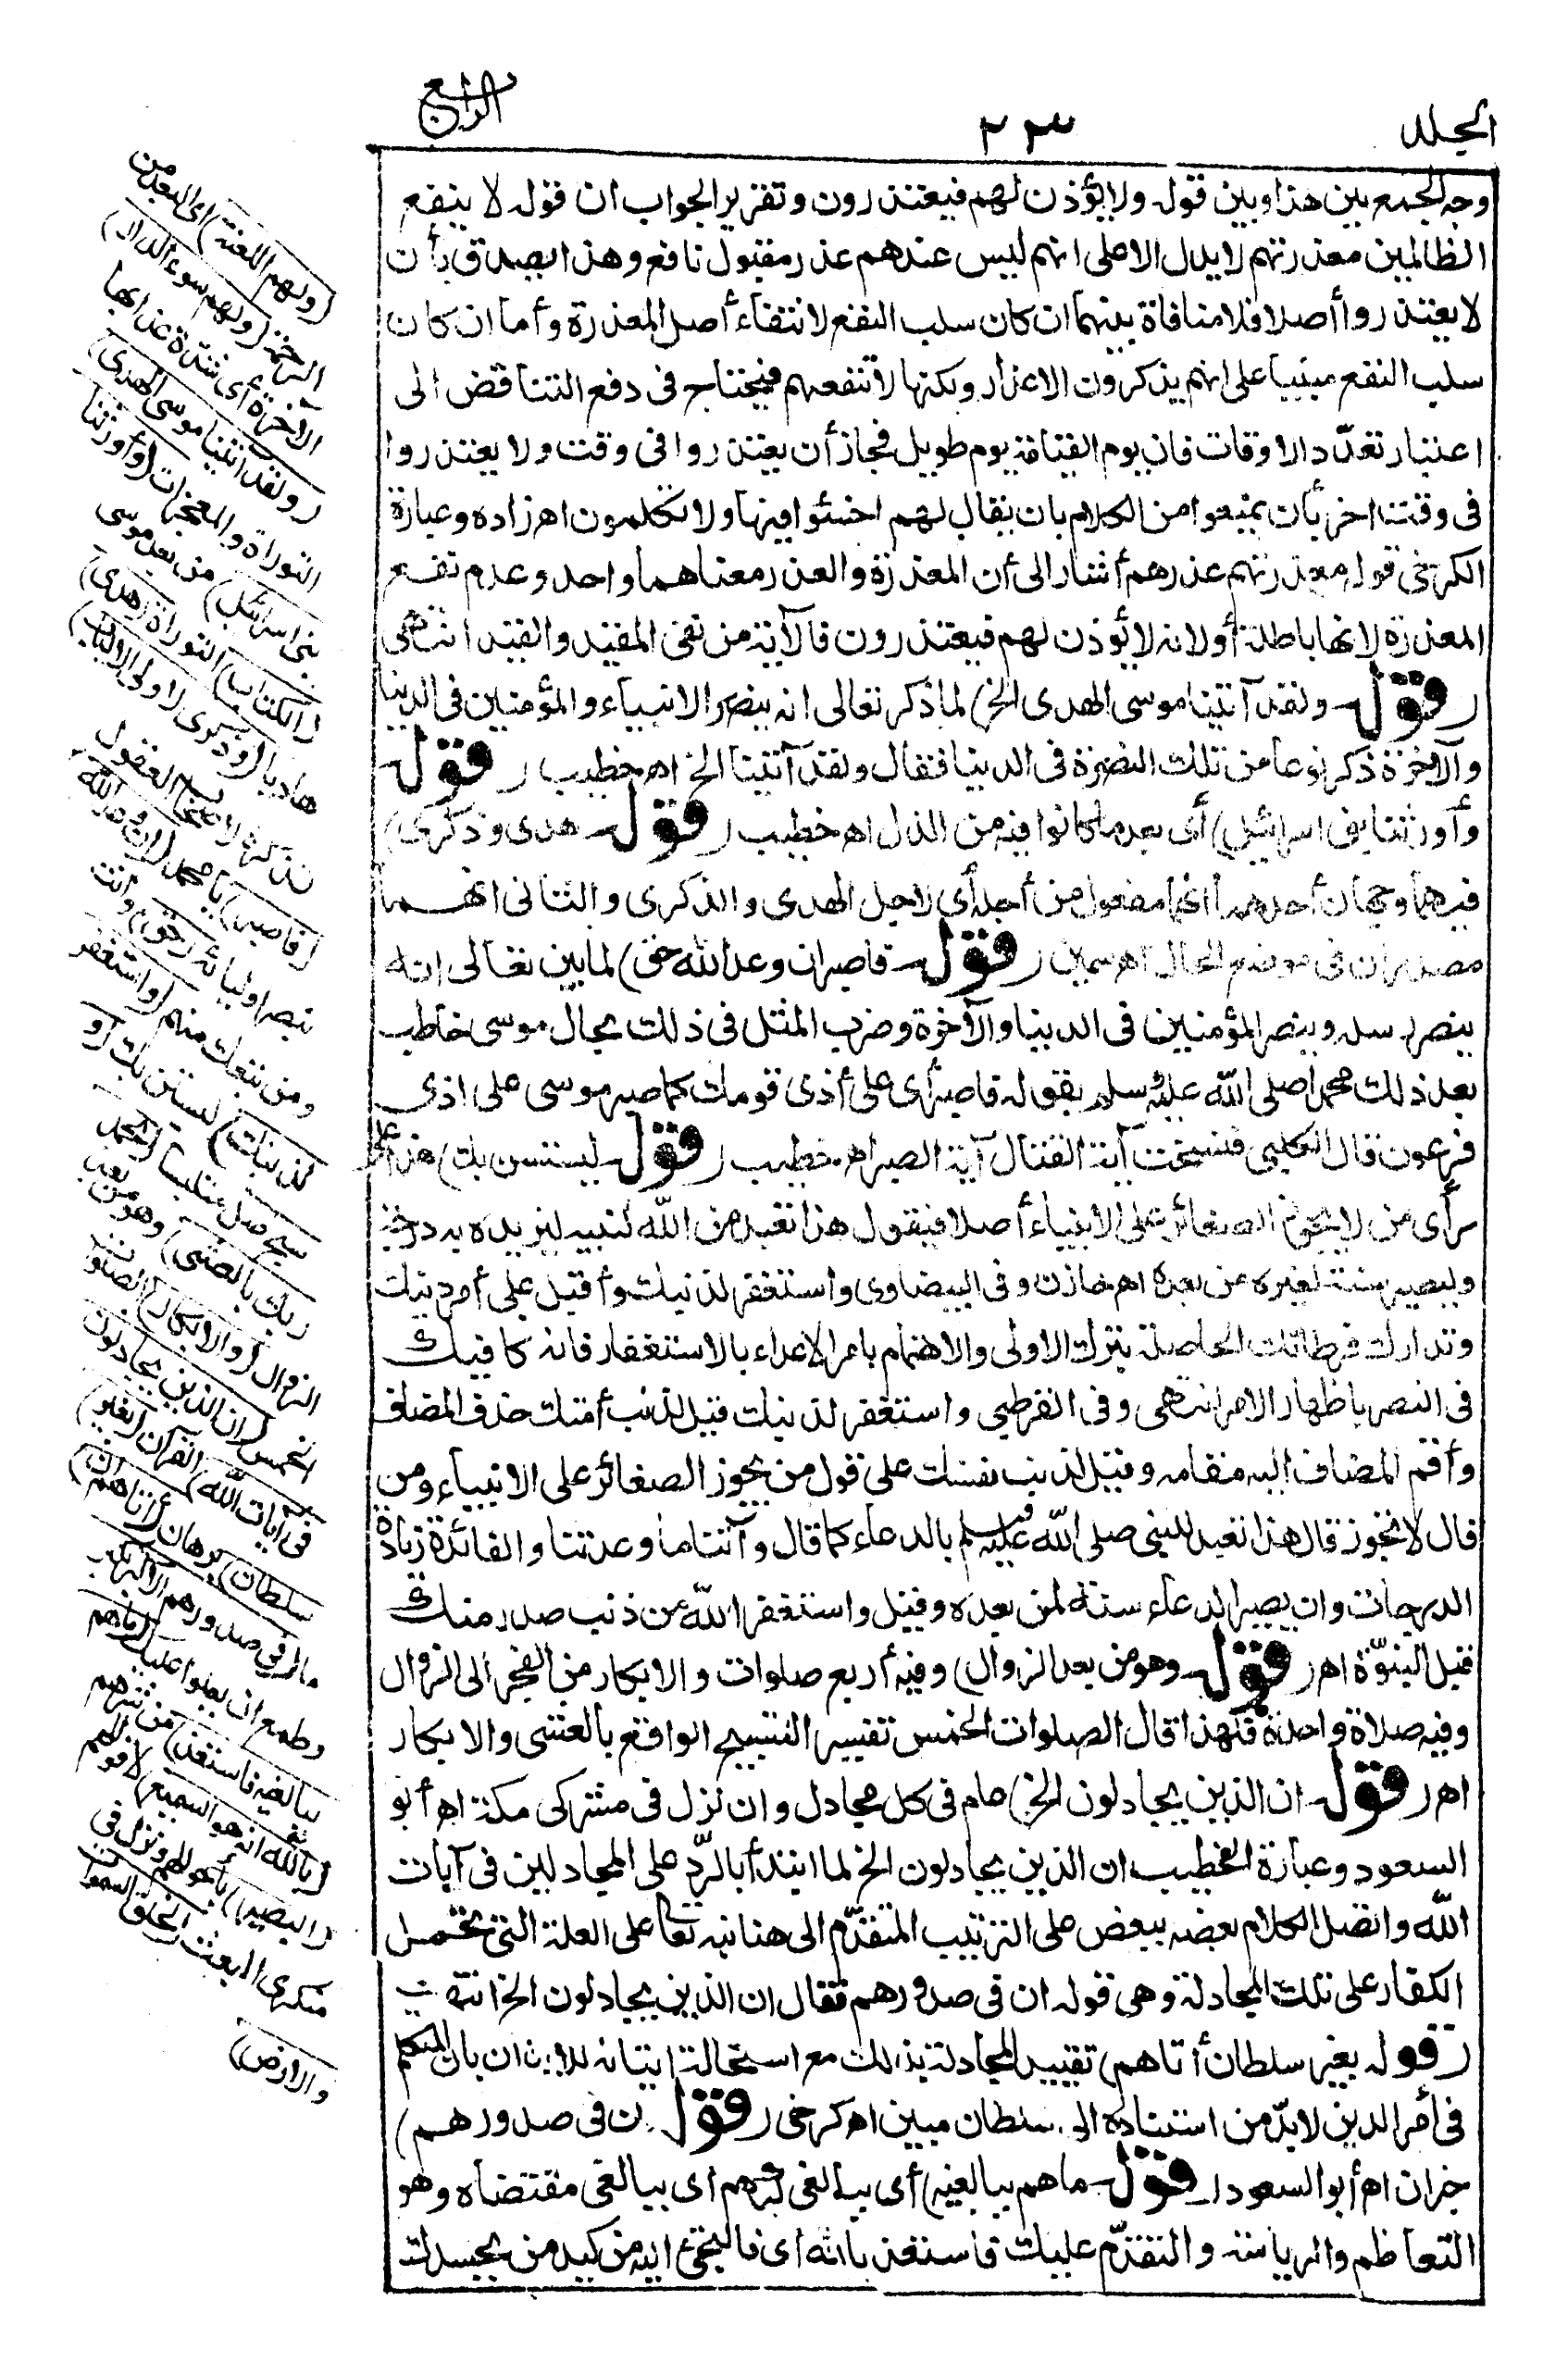 المجلد
٢٣
الرابع
وجه الجمع بين هذا وبين قوله ولا يؤذن لهم فيعتذرون وتقرير الجواب ان قوله لا ينفع
الظالمين معذرتهم لا يدل الا على انهم ليس عندهم عذر مقبول نافع وهذا يصدق بأن
لا يعتذروا أصلا فلا منافاة بينهما ان كان سلب النفع لانتفاء أصل المعذرة وأما ان كان
سلب النفع مبنيا على انهم يذكرون الاعذار ولكنها لا تنفعهم فيحتاج فى دفع التناقض الى
اعتبار تعدّد الاوقات فان يوم القيامة يوم طويل فجاز أن يعتذروا فى وقت ولا يعتذروا
فى وقت اخر بأن يمنعوا من الكلام بان يقال لهم اخسئوا فيها ولا تكلمون اهـ زاده وعبارة
الكرخى قوله معذرتهم عذرهم أشار الى أن المعذرة والعذر معناهما واحد وعدم نفع
المعذرة لانها باطلة أو لانه لا يؤذن لهم فيعتذرون فالآية من نفى المقيد والقيد انتهى
(قوله ولقد آتينا موسى الهدى الخ) لما ذكر تعالى انه ينصر الانبياء والمؤمنين فى الدنيا
والآخرة ذكر نوعا من تلك النصرة فى الدنيا فقال ولقد آتينا الخ اهـ خطيب (قوله
وأورثنا بنى اسرائيل) أى بعد ما كانوا فيه من الذل اهـ خطيب (قوله هدى وذكرى)
فيهما وجهان أحدهما انهما مفعول من أجله أى لاجل الهدى والذكرى والثانى انهما
مصدران فى موضع الحال اهـ سمين (قوله فاصبر ان وعد الله حق) لما بين تعالى انه
ينصر رسله وينصر المؤمنين فى الدنيا والآخرة وضرب المثل فى ذلك بحال موسى خاطب
بعد ذلك محمدا صلى الله عليه وسلم بقوله فاصبر أى على أذى قومك كما صبر موسى على اذى
فرعون قال الكلبى فنسخت آية القتال آية الصبر اهـ خطيب (قوله ليستن بك) هذا على
رأى من لا يجوّز الصغائر على الانبياء أصلا فيقول هذا تعبد من الله لنبيه ليزيده به درجة
وليصير سنة لغيره من بعده اهـ خازن وفى البيضاوى واستغفر لذنبك وأقبل على أمر دينك
وتدارك فرطاتك الحاصلة بترك الاولى والاهتمام بامر الاعداء بالاستغفار فانه كافيك
فى النصر باظهار الامر انتهى وفى القرطبى واستغفر لذنبك قيل لذنب أمتك حذف المضاف
وأقيم المضاف اليه مقامه وقيل لذنب نفسك على قول من يجوز الصغائر على الانبياء ومن
قال لا تجوز قال هذا تعبد للنبى صلى الله عليه وسلم بالدعاء كما قال وآتنا ما وعدتنا والفائدة زيادة
الدرجات وان يصير الدعاء سنة لمن بعده وقيل واستغفر الله من ذنب صدر منك
قبل النبوّة اهـ (قوله وهو من بعد الزوال) وفيه أربع صلوات والابكار من الفجر الى الزوال
وفيه صلاة واحدة فلهذا قال الصلوات الخمس تفسير التسبيح الواقع بالعشى والابكار
اهـ (قوله ان الذين يجادلون الخ) عام فى كل مجادل وان نزل فى مشركى مكة اهـ أبو
السعود وعبارة الخطيب ان الذين يجادلون الخ لما ابتدأ بالردّ على المجادلين فى آيات
الله واتصل الكلام بعضه ببعض على الترتيب المتقدّم الى هنا نبه تعالى على العلة التى تحمل
الكفار على تلك المجادلة وهى قوله ان فى صدورهم فقال ان الذين يجادلون الخ انتهت
(قوله بغير سلطان أتاهم) تقييد المجادلة بذلك مع استحالة اتيانه للايذان بان المتكلم
فى أمر الدين لابدّ من استناده الى سلطان مبين اهـ كرخى (قوله ان فى صدورهم)
خبر ان اهـ أبو السعود (قوله ما هم ببالغيه) أى ببالغى كبرهم أى ببالغى مقتضاه وهو
التعاظم والرياسة والتقدّم عليك فاستعذ بالله أى فالتجئ اليه من كيد من يحسدك
(ولهم اللعنة) اى البعد من
الرحمة (ولهم سوء الدار)
الآخرة أى شدّة عذابها
(ولقد آتينا موسى الهدى)
التوراة والمعجزات (وأورثنا
بنى اسرائيل) من بعد موسى
(الكتاب) التوراة (هدى)
هاديا (وذكرى لاولى الالباب)
تذكرة لاصحاب العقول
(فاصبر) يا محمد (ان وعد الله)
بنصر اوليائه (حق) وانت
ومن تبعك منهم (واستغفر
لذنبك) ليستن بك (و
سبح) صل متلبسا (بحمد
ربك بالعشى) وهو من بعد
الزوال (والابكار) الصلوات
الخمس (ان الذين يجادلون
فى آيات الله) القرآن (بغير
سلطان) برهان (أتاهم ان)
ما (فى صدورهم الا كبر) تكبر
وطمع ان يعلوا عليك (ما هم
ببالغيه فاستعذ) من شرهم
(بالله انه هو السميع) لاقوالهم
(البصير) بأحوالهم ونزل فى
منكرى البعث (لخلق السموات
والارض)